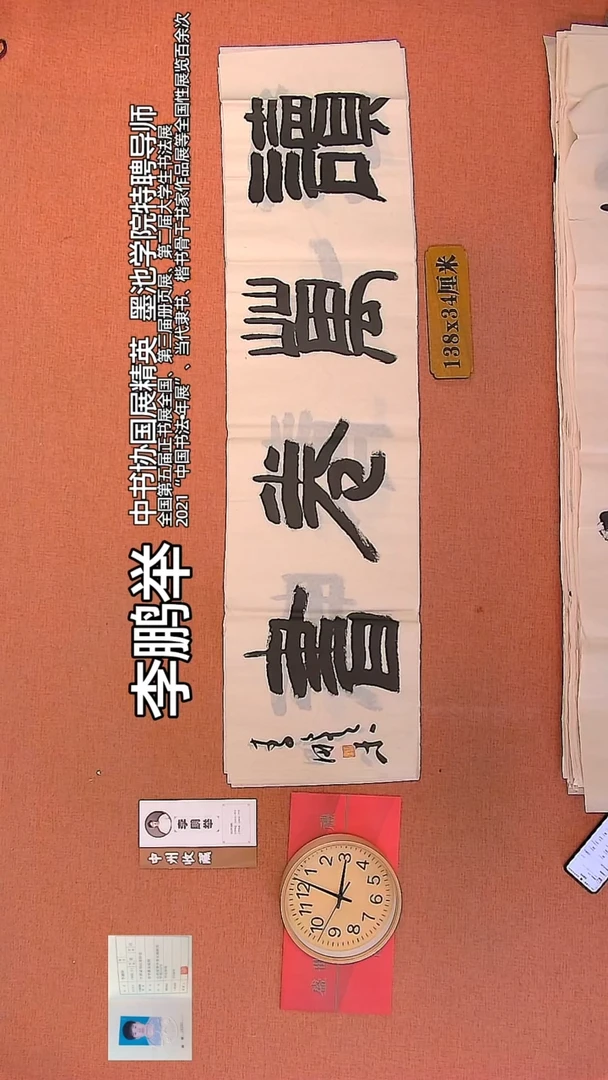 李鹏举
中书协国展精英 墨池学院特聘导师
全国第五届正书展全国、第三届册页展、第二届大学生书法展
2021“中国书法·年展”、当代隶书、楷书骨干书家作品展等全国性展览百余次
讀萬卷書
138x34厘米
李鹏举
中州收藏
12
1
2
3
4
5
6
7
8
9
10
11